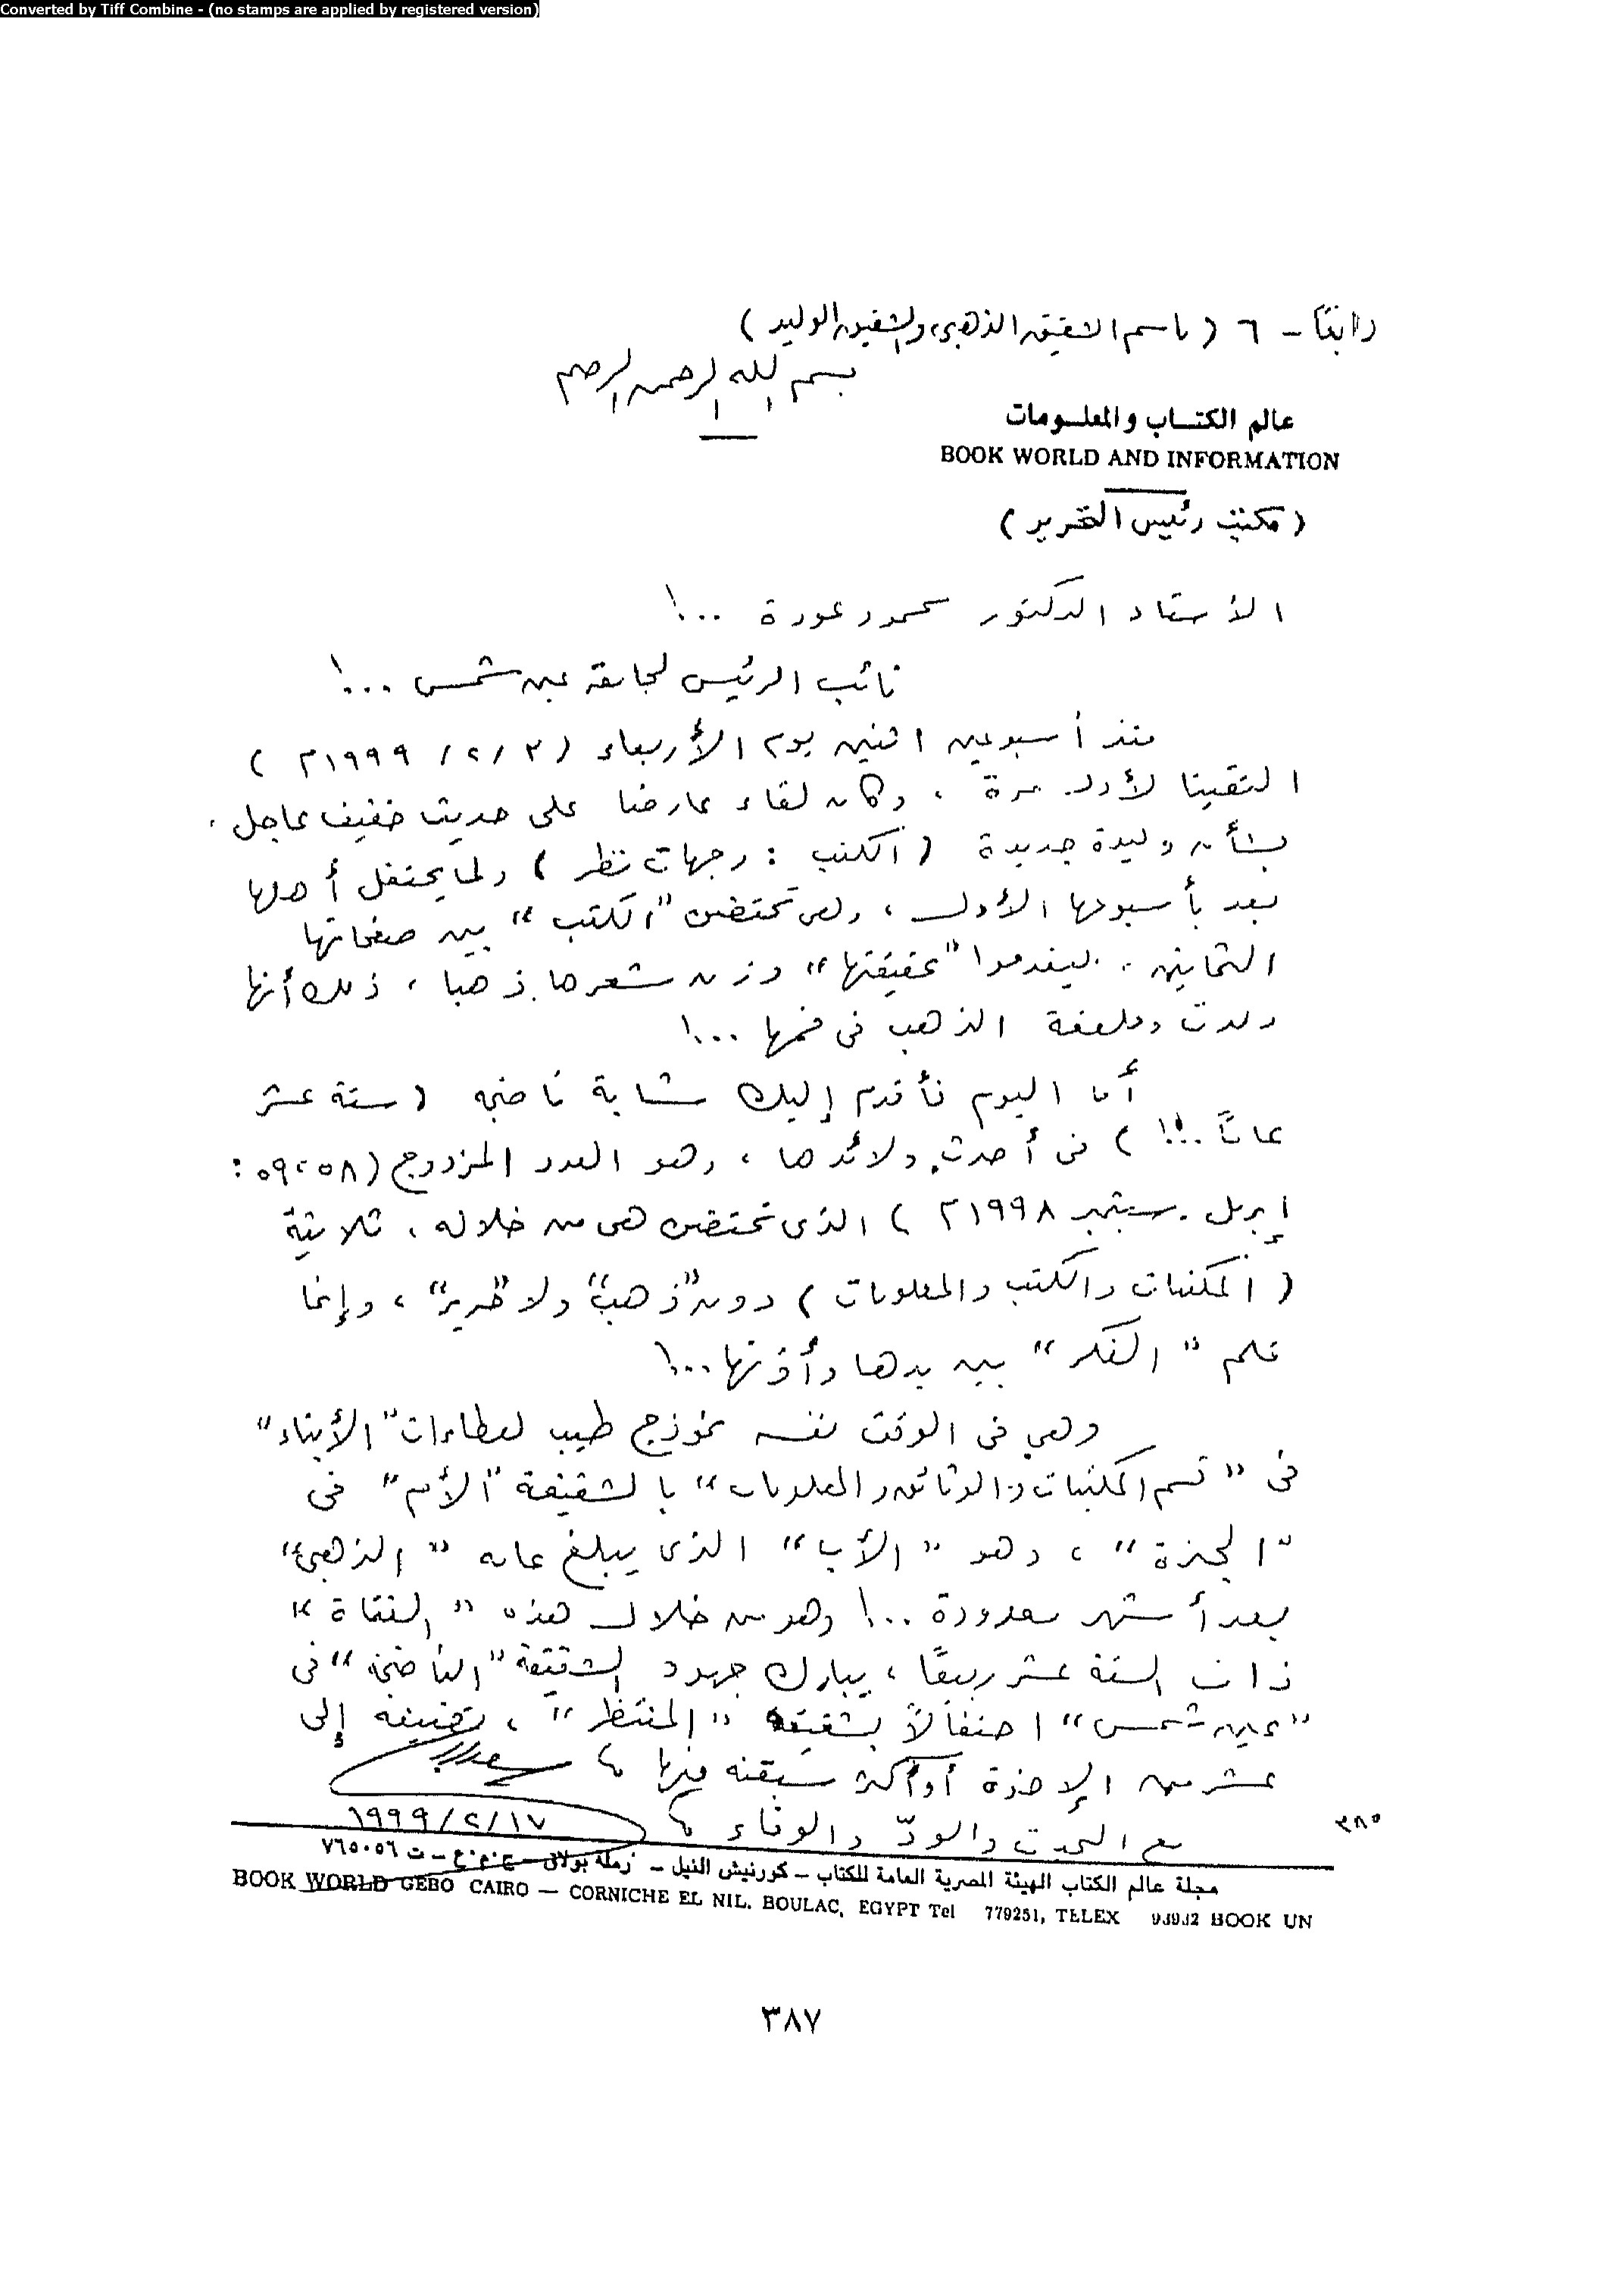 Converted by Tiff Combine - (no stamps are applied by registered version)
رابعًا - ٦ ( باسم الشقيق الذهبى، والشقيق الوليد )
بسم الله الرحمن الرحيم
عالم الكتـــاب والمعلـــومات
BOOK WORLD AND INFORMATION
( مكتب رئيس التحرير )
الأستاذ الدكتور محمود عودة ...!
نائب الرئيس لجامعة عين شمس ...!
منذ أسبوعين اثنين يوم الأربعاء ( ٣ / ٢ / ١٩٩٩م )
التقينا لأول مرة ، وكان لقاء عارضا على حديث خفيف عاجل ،
بشأن وليدة جديدة ( الكتب : وجهات نظر ) ولما يحتفل أهلها
بعد بأسبوعها الأول ، وهى تحتضن "الكتب" بين صفحاتها
الثمانين .. ليقدموا "عقيقتها" وزن شعرها ذهبا ، ذلك أنها
ولدت وملعقة الذهب فى فمها ...!
أما اليوم فأقدم إليك شابة ناضجة ( ستة عشر
عامًا ..!! ) فى أحدث ولائدها ، وهو العدد المزدوج ( ٥٨، ٥٩ :
إبريل . سبتمبر ١٩٩٨م ) الذى تحتضن هى من خلاله ، ثلاثية
( المكتبات والكتب والمعلومات ) دون "ذهب" ولا "حرير" ، وإنما
قلم " الفكر " بين يدها وأذنها ...!
وهى فى الوقت نفسه نموذج طيب لعطاءات "الأبناء"
فى " قسم المكتبات والوثائق والمعلومات " بالشقيقة "الأم" فى
"الجيزة" ، وهو " الأب " الذى يبلغ عامه " الذهبى "
بعد أشهر معدودة ...! وهو من خلال هذه " الفتاة "
ذات الستة عشر ربيعًا ، يبارك جهود الشقيقة "الناضجة" فى
"عين شمس" احتفالاً بشقيقه "المنتظر" ، تضيفه إلى
عشر من الإخوة أو أكثر سبقنه فيها
مع الحب والودّ والوفاء
١٧/ ٢ / ١٩٩٩
٣٨٥
مجلة عالم الكتاب الهيئة المصرية العامة للكتاب – كورنيش النيل – رملة بولاق – ج.م.ع – ت ٧٦٥٠٥٦
BOOK WORLD GEBO CAIRO — CORNICHE EL NIL. BOULAC, EGYPT Tel 779251, TELEX 93932 BOOK UN
٣٨٧